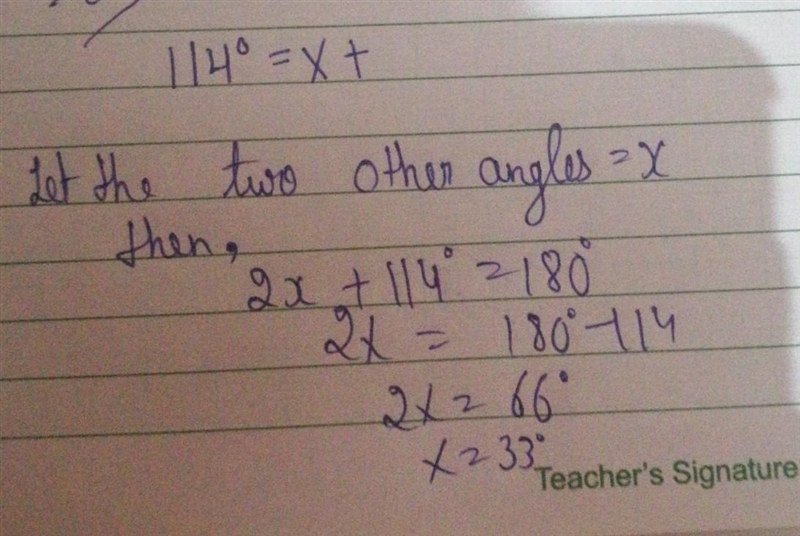 114° = x +
Let the two other angles = x
then,
2x + 114° = 180°
2x = 180° - 114
2x = 66°
x = 33°
Teacher's Signature